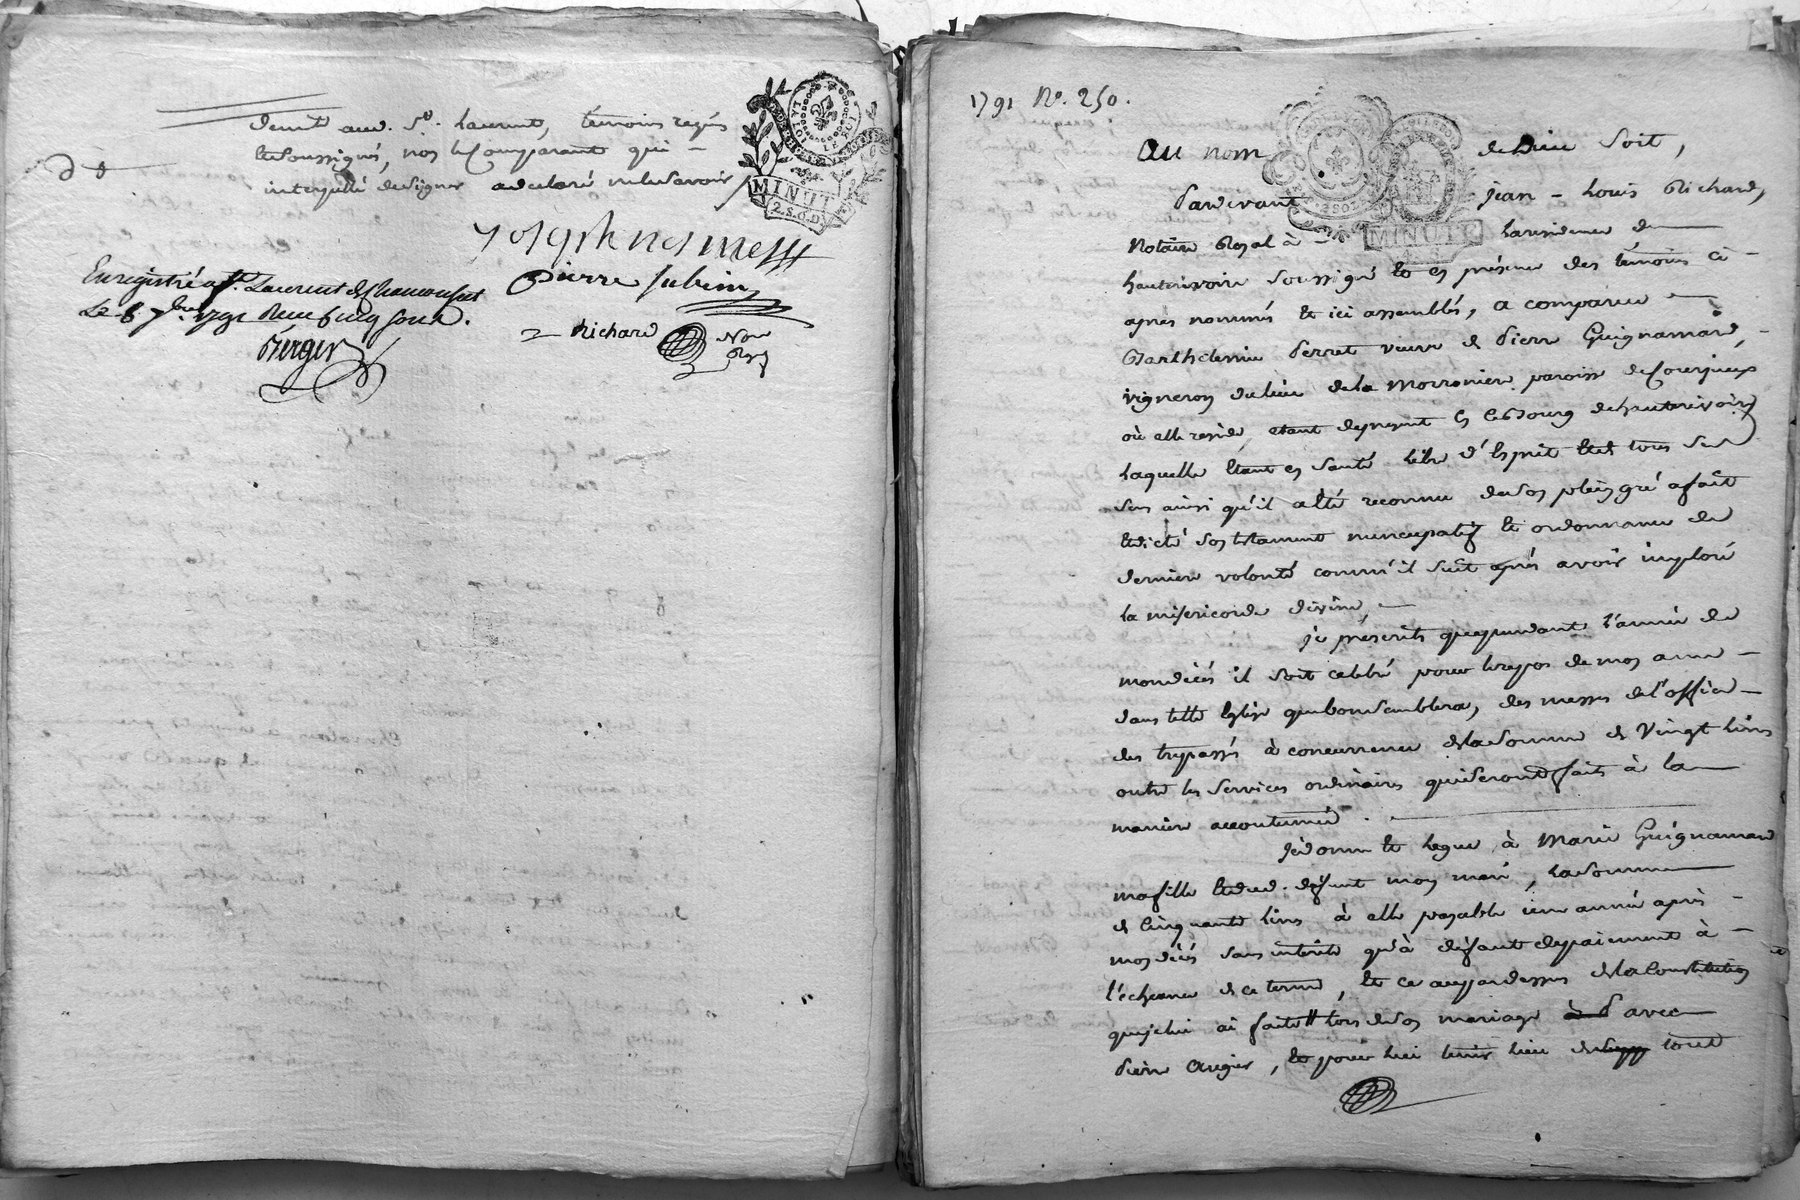 demt aud. St. Laurent, temoins requis
et soussignés, non le Comparant qui
interpellé de signer a declaré ne le savoir /
LA LOI LE ROI
MINUTE
2.S.6.D
Pierre Jubin
Enregistré a St. Laurent de Chamousset
Le 8 7bre 1791 Reçu cinq sous.
Richard Nore
Berger
1791 No. 250.
Au nom de Dieu soit,
Pardevant Jean-Louis Richard,
MINUTE
Notaire Royal à la residence de
hauterivoire soussigné et en présence des témoins ci-
apres nommés et ici assemblés, a comparue
Barthelemie Perret veuve de Pierre Guignamard,
vigneron du lieu de la Morroniere paroisse de Courzieux
où elle reside, etant de present en ce bourg de hauterivoire
laquelle étant en santé libre d'esprit et de tous ses
sens ainsi qu'il a été reconnu de son plein gré a fait
et dicté son testament nuncupatif et ordonnance de
derniere volonté comm'il suit après avoir imploré
la misericorde divine,
je prescrits que pendant l'année de
mon décés il soit celebré pour le repos de mon ame
dans telle Eglise que bon semblera, des messes de l'office
des trepassés à concurrence de la somme de vingt livres
outre les services ordinaires qui seront faits à la
maniere accoutumée.
Je donne et legue à Marie Guignamard
ma fille et dud. défunt mon mari, la somme
de cinquante livres à elle payable une année après
mon décés sans interêts qu'à défaut de paiement à
l'echeance de ce terme, et ce aupardessus de la Constitution
que je lui ai faite lors de son mariage d'avec
Pierre Augier, et pour lui tenir lieu de tout